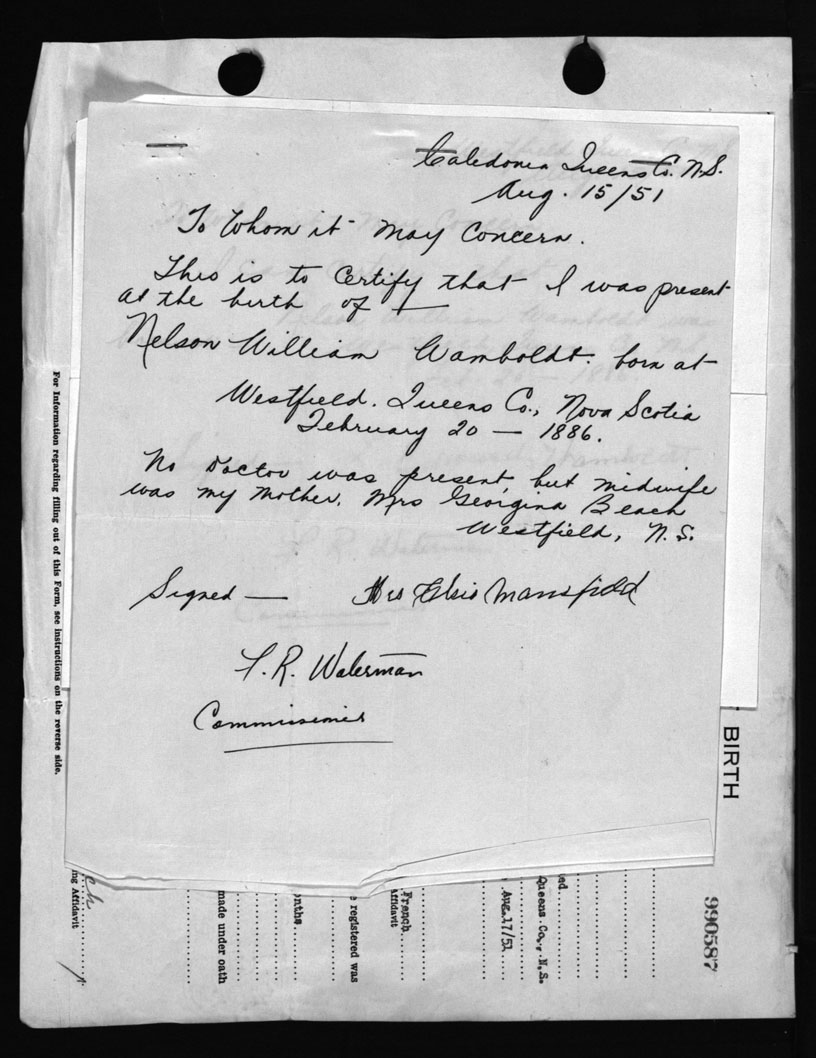 Caledonia Queens Co. N.S.
Aug. 15/51
To Whom it May Concern.
This is to Certify that I was present
at the birth of —
Nelson William Wamboldt born at
Westfield. Queens Co., Nova Scotia
February 20 — 1886.
No Doctor was present, but midwife
was my Mother, Mrs Georgina Beach
Westfield, N.S.
Signed — Mrs Elsie Mansfield
R. Waterman
Commissioner
For Information regarding filling out of this Form, see instructions on the reverse side.
BIRTH
990587
ed.
Queens Co., N.S.
Aug.17/51
French
Affidavit
e registered was
nths
made under oath
ch.
ng Affidavit